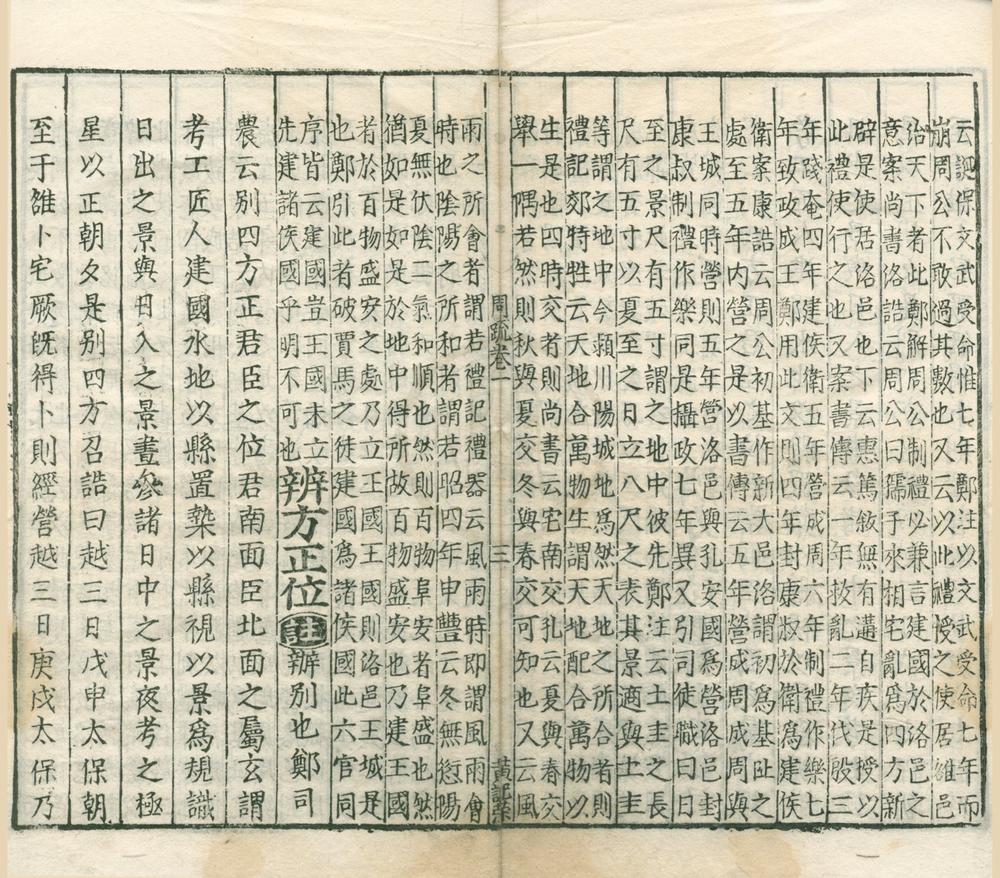 云誕保文武受命惟七年鄭注以文武受命七年而
崩周公不敢過其數也又云以此禮授之使居雒邑
治天下者此鄭解周公制禮必兼言建國於洛邑之
意案尚書洛誥云周公曰孺子來相宅亂爲四方新
辟是使居洛邑也下云惠篤敘無有遘自疾是授以
此禮使行之也又案書傳云一年救亂二年伐殷三
年踐奄四年建侯衛五年營成周六年制禮作樂七
年致政成王鄭用此文則四年封康叔於衛爲建侯
衛案康誥云周公初基作新大邑洛謂初爲基阯之
處至五年内營之是以書傳云五年營成周成周與
王城同時營則五年營洛邑與孔安國爲營洛邑封
康叔制禮作樂同是攝政七年異又引司徒職曰日
至之景尺有五寸謂之地中彼先鄭注云土圭之長
尺有五寸以夏至之日立八尺之表其景適與土圭
等謂之地中今潁川陽城地爲然天地之所合者則
禮記郊特牲云天地合萬物生謂天地配合萬物以
生是也四時交者則尚書云宅南交孔云夏與春交
舉一隅若然則秋與夏交冬與春交可知也又云風
周疏卷一
三
雨之所會者謂若禮記禮器云風雨時即謂風雨會
時也陰陽之所和者謂若昭四年申豐云冬無愆陽
夏無伏陰二氣和順也然則百物阜安者阜盛也然
猶如是如是於地中得所故百物盛安也乃建王國
者於百物盛安之處乃立王國王國則洛邑王城是
也鄭引此者破賈馬之徒建國爲諸侯國此六官同
序皆云建國豈王國未立
先建諸侯國乎明不可也
辨方正位註辨别也鄭司
農云别四方正君臣之位君南面臣北面之屬玄謂
考工匠人建國水地以縣置槷以縣視以景爲規識
日出之景與日入之景晝參諸日中之景夜考之極
星以正朝夕是别四方召誥曰越三日戊申太保朝
至于雒卜宅厥既得卜則經營越三日庚戌太保乃